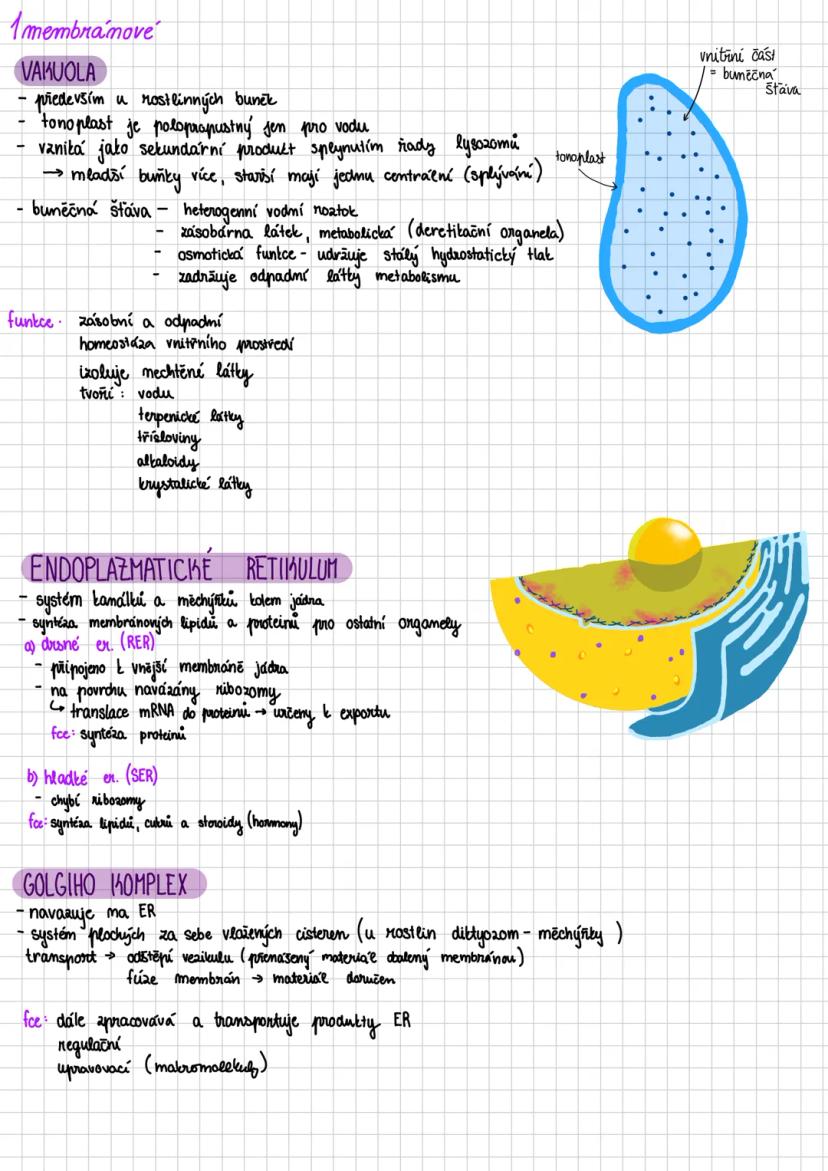 1 membránové
VAKUOLA
vnitřní část
= buněčná
šťáva
- především u rostlinných buněk
- tonoplast je polopropustný jen pro vodu
- vzniká jako sekundární produkt splynutím řady lysozomů
tonoplast
→ mladší buňky více, starší mají jednu centrální (splývání)
- buněčná šťáva – heterogenní vodní roztok
- zásobárna látek, metabolická (deretikační organela)
- osmotická funkce - udržuje stálý hydrostatický tlak
- zadržuje odpadní látky metabolismu
funkce: zásobní a odpadní
homeostáza vnitřního prostředí
izoluje nechtěné látky
tvoří: vodu
terpenické látky
třísloviny
alkaloidy
krystalické látky
ENDOPLAZMATICKÉ RETIKULUM
- systém kanálků a měchýřků kolem jádra
- syntéza membránových lipidů a proteinů pro ostatní organely
a) drsné er. (RER)
- připojeno k vnější membráně jádra
- na povrchu navázány ribozomy
↳ translace mRNA do proteinů → určeny k exportu
fce: syntéza proteinů
b) hladké er. (SER)
- chybí ribozomy
fce: syntéza lipidů, cukrů a steroidy (hormony)
GOLGIHO KOMPLEX
- navazuje na ER
- systém plochých za sebe vložených cisteren (u rostlin diktyozom - měchýřky )
transport → odštěpí vezikulu (přenášený materiál obalený membránou)
fúze membrán → materiál doručen
fce: dále zpracovává a transportuje produkty ER
regulační
upravovací (makromolekuly)